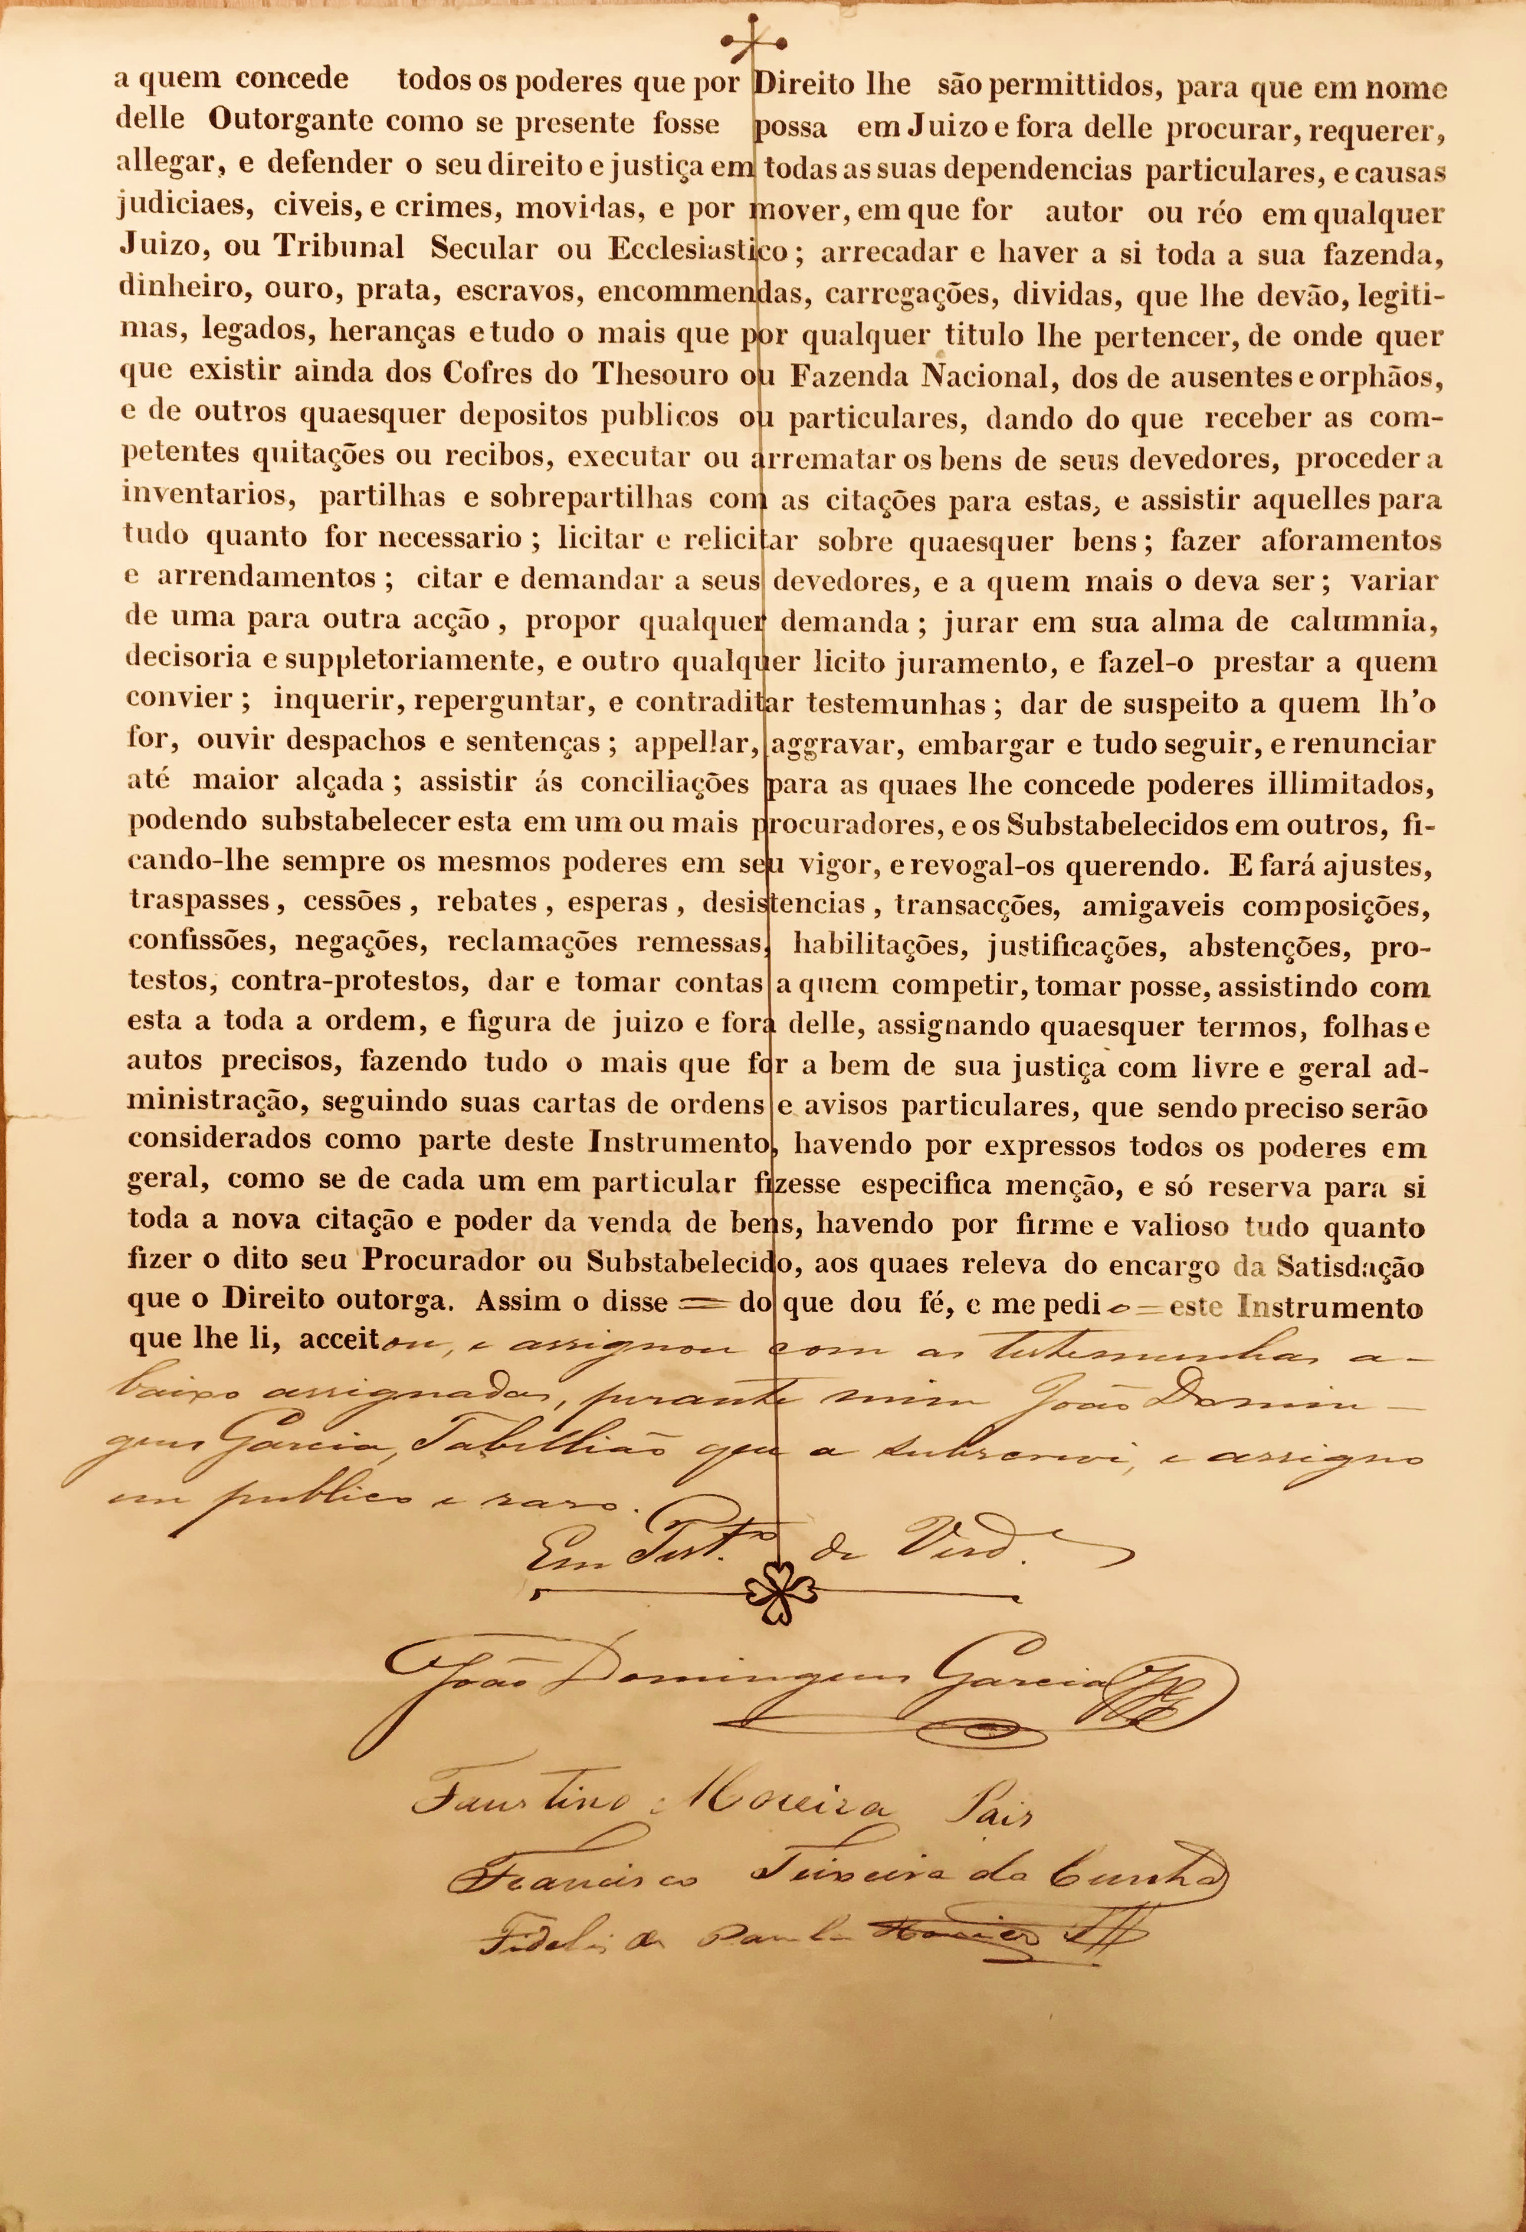 a quem concede todos os poderes que por Direito lhe são permittidos, para que em nome
delle Outorgante como se presente fosse possa em Juizo e fora delle procurar, requerer,
allegar, e defender o seu direito e justiça em todas as suas dependencias particulares, e causas
judiciaes, civeis, e crimes, movidas, e por mover, em que for autor ou réo em qualquer
Juizo, ou Tribunal Secular ou Ecclesiastico; arrecadar e haver a si toda a sua fazenda,
dinheiro, ouro, prata, escravos, encommendas, carregações, dividas, que lhe devão, legiti-
mas, legados, heranças e tudo o mais que por qualquer titulo lhe pertencer, de onde quer
que existir ainda dos Cofres do Thesouro ou Fazenda Nacional, dos de ausentes e orphãos,
e de outros quaesquer depositos publicos ou particulares, dando do que receber as com-
petentes quitações ou recibos, executar ou arrematar os bens de seus devedores, proceder a
inventarios, partilhas e sobrepartilhas com as citações para estas, e assistir aquelles para
tudo quanto for necessario; licitar e relicitar sobre quaesquer bens; fazer aforamentos
e arrendamentos; citar e demandar a seus devedores, e a quem mais o deva ser; variar
de uma para outra acção, propor qualquer demanda; jurar em sua alma de calumnia,
decisoria e suppletoriamente, e outro qualquer licito juramento, e fazel-o prestar a quem
convier; inquerir, reperguntar, e contraditar testemunhas; dar de suspeito a quem lh'o
for, ouvir despachos e sentenças; appellar, aggravar, embargar e tudo seguir, e renunciar
até maior alçada; assistir ás conciliações para as quaes lhe concede poderes illimitados,
podendo substabelecer esta em um ou mais procuradores, e os Substabelecidos em outros, fi-
cando-lhe sempre os mesmos poderes em seu vigor, e revogal-os querendo. E fará ajustes,
traspasses, cessões, rebates, esperas, desistencias, transacções, amigaveis composições,
confissões, negações, reclamações remessas, habilitações, justificações, abstenções, pro-
testos, contra-protestos, dar e tomar contas a quem competir, tomar posse, assistindo com
esta a toda a ordem, e figura de juizo e fora delle, assignando quaesquer termos, folhas e
autos precisos, fazendo tudo o mais que for a bem de sua justiça com livre e geral ad-
ministração, seguindo suas cartas de ordens e avisos particulares, que sendo preciso serão
considerados como parte deste Instrumento, havendo por expressos todos os poderes em
geral, como se de cada um em particular fizesse especifica menção, e só reserva para si
toda a nova citação e poder da venda de bens, havendo por firme e valioso tudo quanto
fizer o dito seu Procurador ou Substabelecido, aos quaes releva do encargo da Satisdação
que o Direito outorga. Assim o disse = do que dou fé, e me pedi o = este Instrumento
que lhe li, acceitou, e assignou com as testemunhas a-
baixo assignadas, perante mim João Domin-
gues Garcia, Tabellião que a subscrevi, e assigno
em publico e raso.
Em Test.º de Verd.e
João Domingues Garcia
Faustino Moreira Pais
Francisco Teixeira da Cunha
Fidelis de Paula